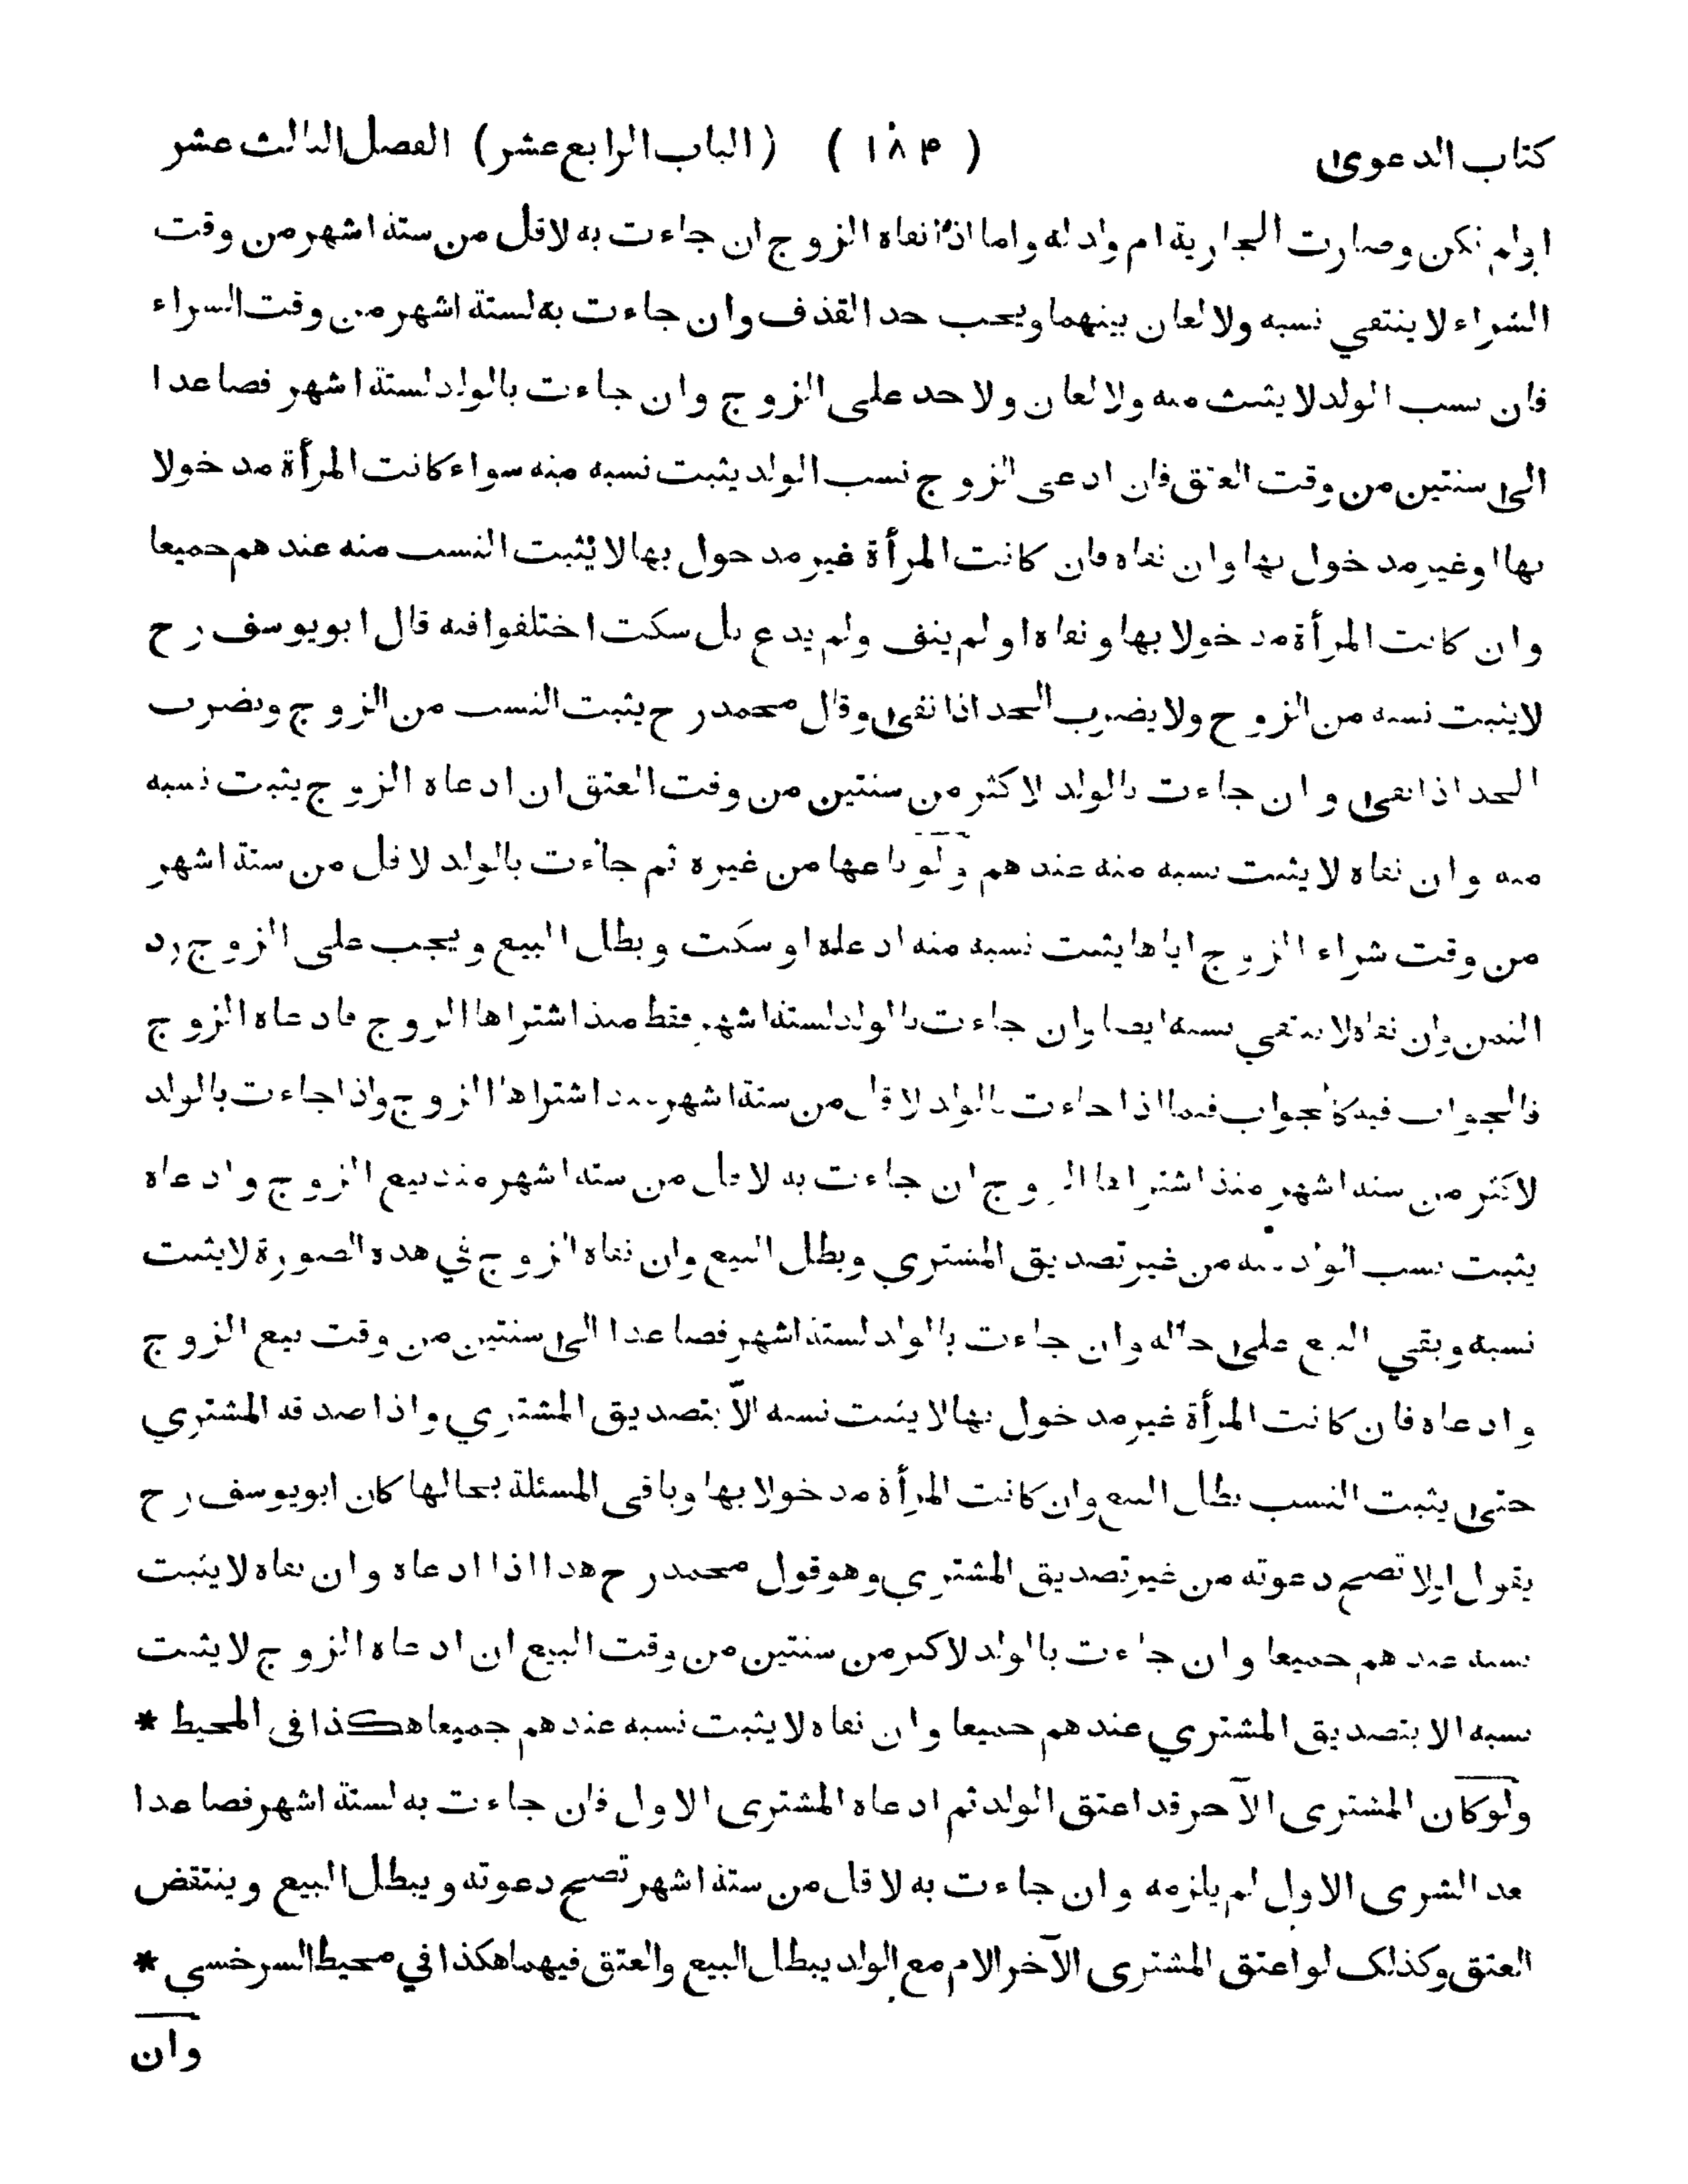 كتاب الدعوى ( ١٨٤ ) (الباب الرابع عشر) الفصل الثالث عشر
اولم تكن وصارت الجارية ام ولد له واما اذا نفاه الزوج ان جاءت به لاقل من ستة اشهر من وقت
الشراء لا ينتفي نسبه ولا لعان بينهما ويجب حد القذف وان جاءت به لستة اشهر من وقت الشراء
فان نسب الولد لا يثبت منه ولا لعان ولا حد على الزوج وان جاءت بالولد لستة اشهر فصاعدا
الى سنتين من وقت العتق فان ادعى الزوج نسب الولد يثبت نسبه منه سواء كانت المرأة مدخولا
بها او غير مدخول بها وان نفاه فان كانت المرأة غير مدخول بها لا يثبت النسب منه عندهم جميعا
وان كانت المرأة مدخولا بها ونفاه او لم ينف ولم يدع بل سكت اختلفوا فيه قال ابو يوسف رح
لا يثبت نسبه من الزوج ولا يضرب الحد اذا نفى وقال محمد رح يثبت النسب من الزوج ويضرب
الحد اذا نفى وان جاءت بالولد لاكثر من سنتين من وقت العتق ان ادعاه الزوج يثبت نسبه
منه وان نفاه لا يثبت نسبه منه عندهم ولو باعها من غيره ثم جاءت بالولد لاقل من ستة اشهر
من وقت شراء الزوج اياها يثبت نسبه منه ادعاه او سكت وبطل البيع ويجب على الزوج رد
الثمن وان نفاه لا ينتفي نسبه ايضا وان جاءت بالولد لستة اشهر فقط منذ اشتراها الزوج فادعاه الزوج
فالجواب فيه كالجواب فيما اذا جاءت بالولد لاقل من ستة اشهر منذ اشتراها الزوج واذا جاءت بالولد
لاكثر من ستة اشهر منذ اشتراها الزوج ان جاءت به لاقل من ستة اشهر منذ بيع الزوج وادعاه
يثبت نسب الولد منه من غير تصديق المشتري وبطل البيع وان نفاه الزوج في هذه الصورة لا يثبت
نسبه وبقي البيع على حاله وان جاءت بالولد لستة اشهر فصاعدا الى سنتين من وقت بيع الزوج
وادعاه فان كانت المرأة غير مدخول بها لا يثبت نسبه الا بتصديق المشتري واذا صدقه المشتري
حتى يثبت النسب بطل البيع وان كانت المرأة مدخولا بها وباقى المسئلة بحالها كان ابو يوسف رح
يقول اولا تصح دعوته من غير تصديق المشتري وهو قول محمد رح هذا اذا ادعاه وان نفاه لا يثبت
نسبه عندهم جميعا وان جاءت بالولد لاكثر من سنتين من وقت البيع ان ادعاه الزوج لا يثبت
نسبه الا بتصديق المشتري عندهم جميعا وان نفاه لا يثبت نسبه عندهم جميعا هكذا فى المحيط *
ولو كان المشترى الآخر قد اعتق الولد ثم ادعاه المشترى الاول فان جاءت به لستة اشهر فصاعدا
بعد الشرى الاول لم يلزمه وان جاءت به لاقل من ستة اشهر تصح دعوته ويبطل البيع وينتقض
العتق وكذلك لو اعتق المشترى الآخر الام مع الولد يبطل البيع والعتق فيهما هكذا في محيط السرخسي *
وان